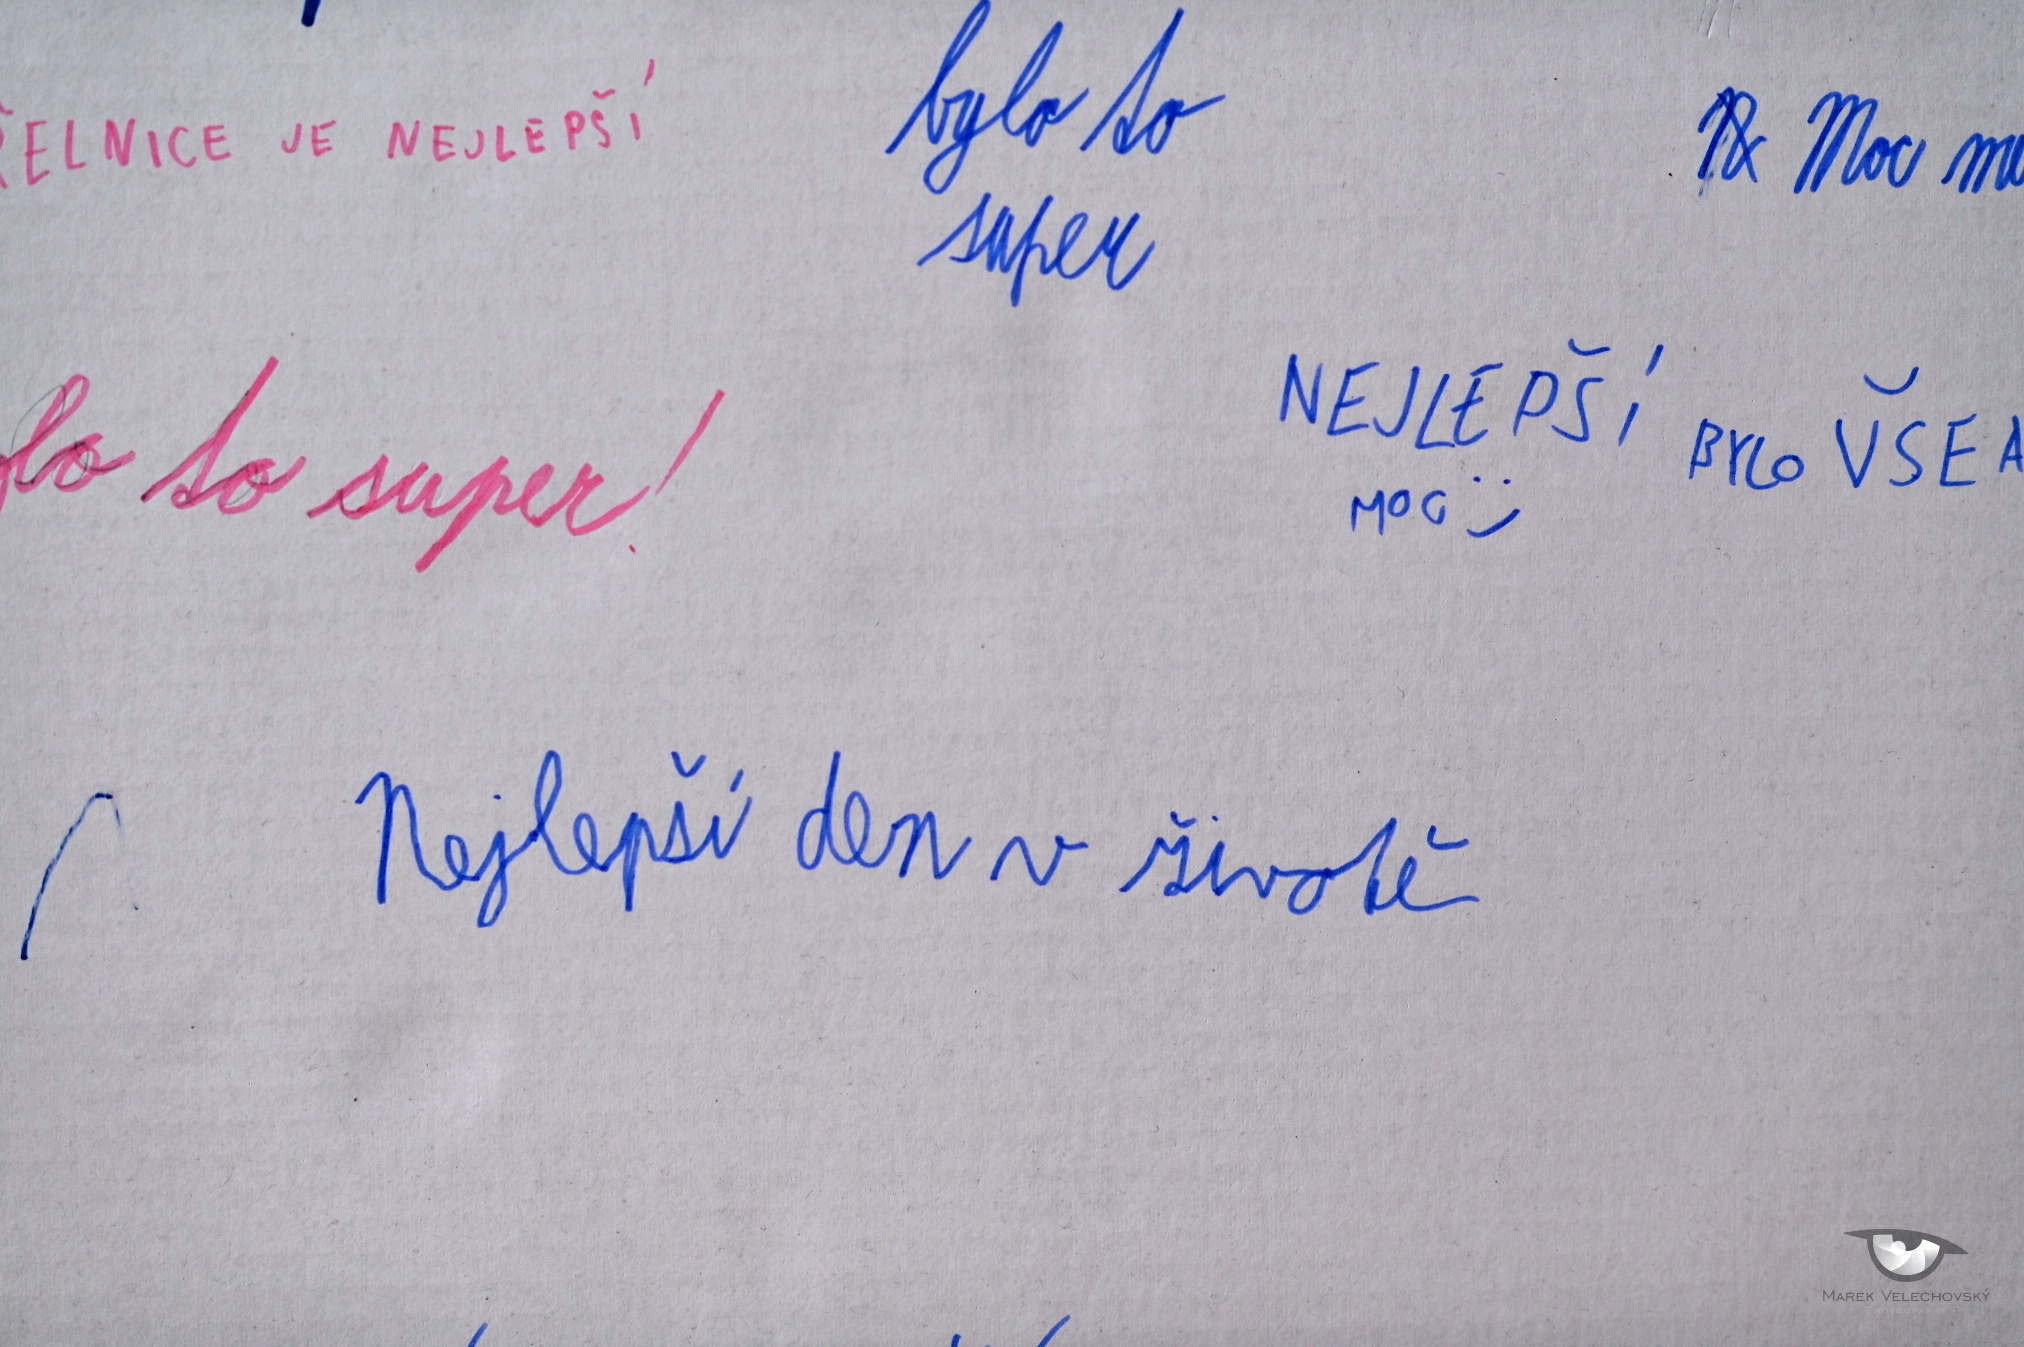 ŘELNICE JE NEJLEPŠÍ
bylo to
super
Moc
lo to super!
NEJLEPŠÍ BYLO VŠE A
MOC :)
Nejlepší den v životě
MAREK VELECHOVSKÝ